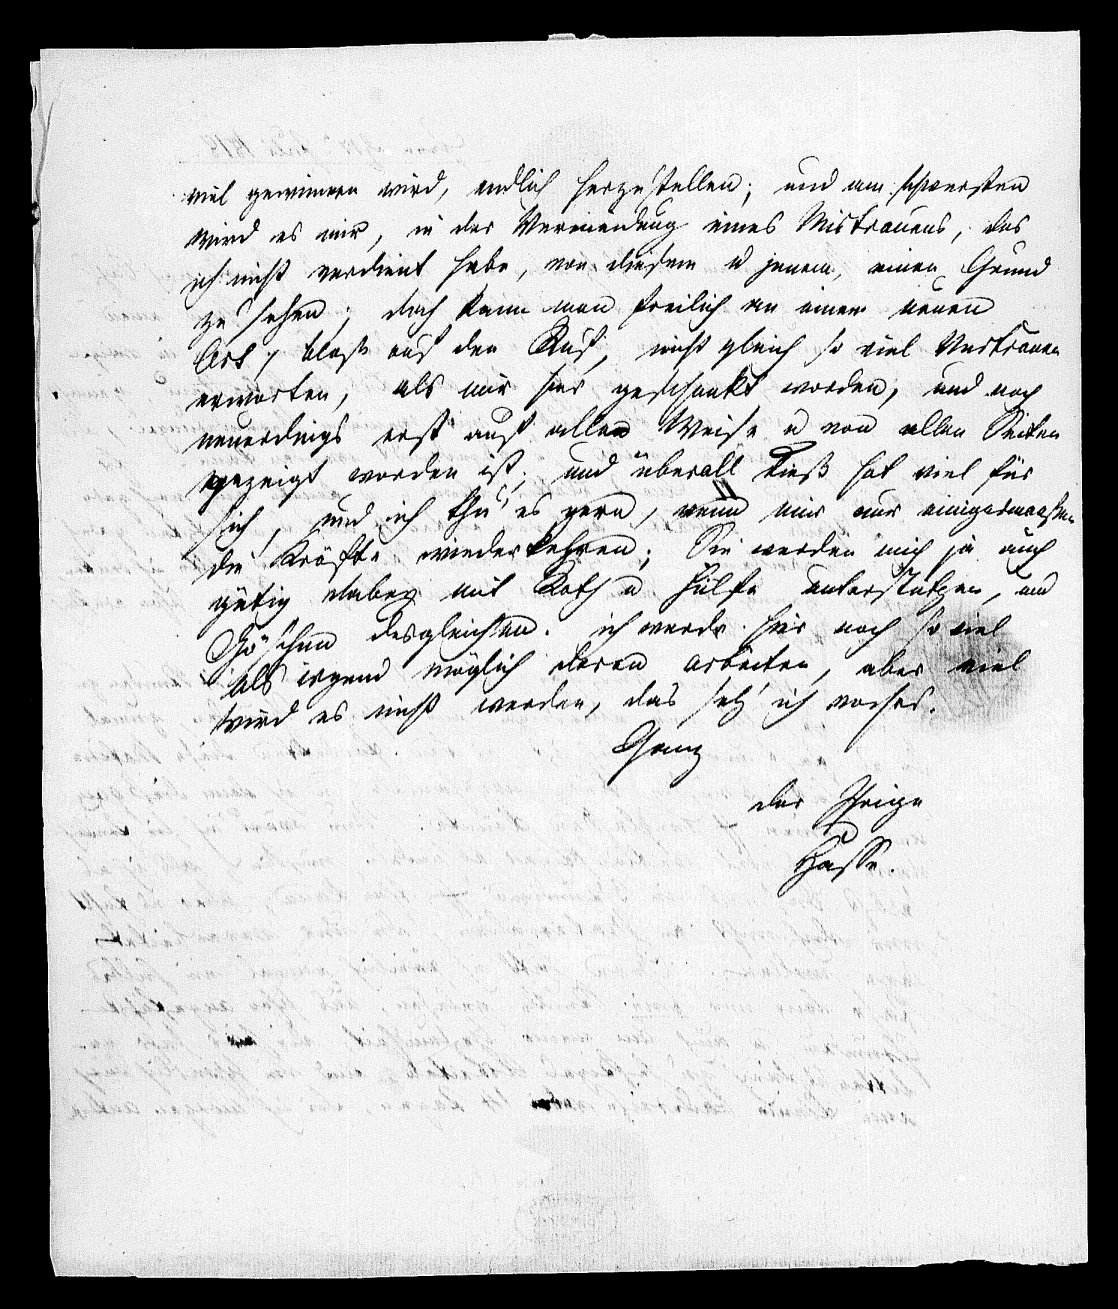 viel gewinnen wird, endlich herzustellen; und am schwersten
wird es mir, in der Vermeidung eines Mistrauens, das
ich nicht verdient habe, von diesem u jenem, einen Grund
zu sehen; doch kann man freilich an einem neuen
Ort, bloß auf den Ruf, nicht gleich so viel Vertrauen
erwarten, als mir hier geschenkt worden, und noch
neuerdings erst auf alle Weise u von allen Seiten
gezeigt worden ist; und überall dieß hat viel für
sich, und ich thu' es gern, wenn mir nur einigermaaßen
die Kräfte wiederkehren; Sie werden mich ja auch
gütig dabey mit Rath u Hülfe unterstützen, und
Göschen desgleichen. ich werde hier noch so viel
als irgend möglich daran arbeiten, aber viel
wird es nicht werden, das seh' ich vorher.
Ganz
der Ihrige
Hasse